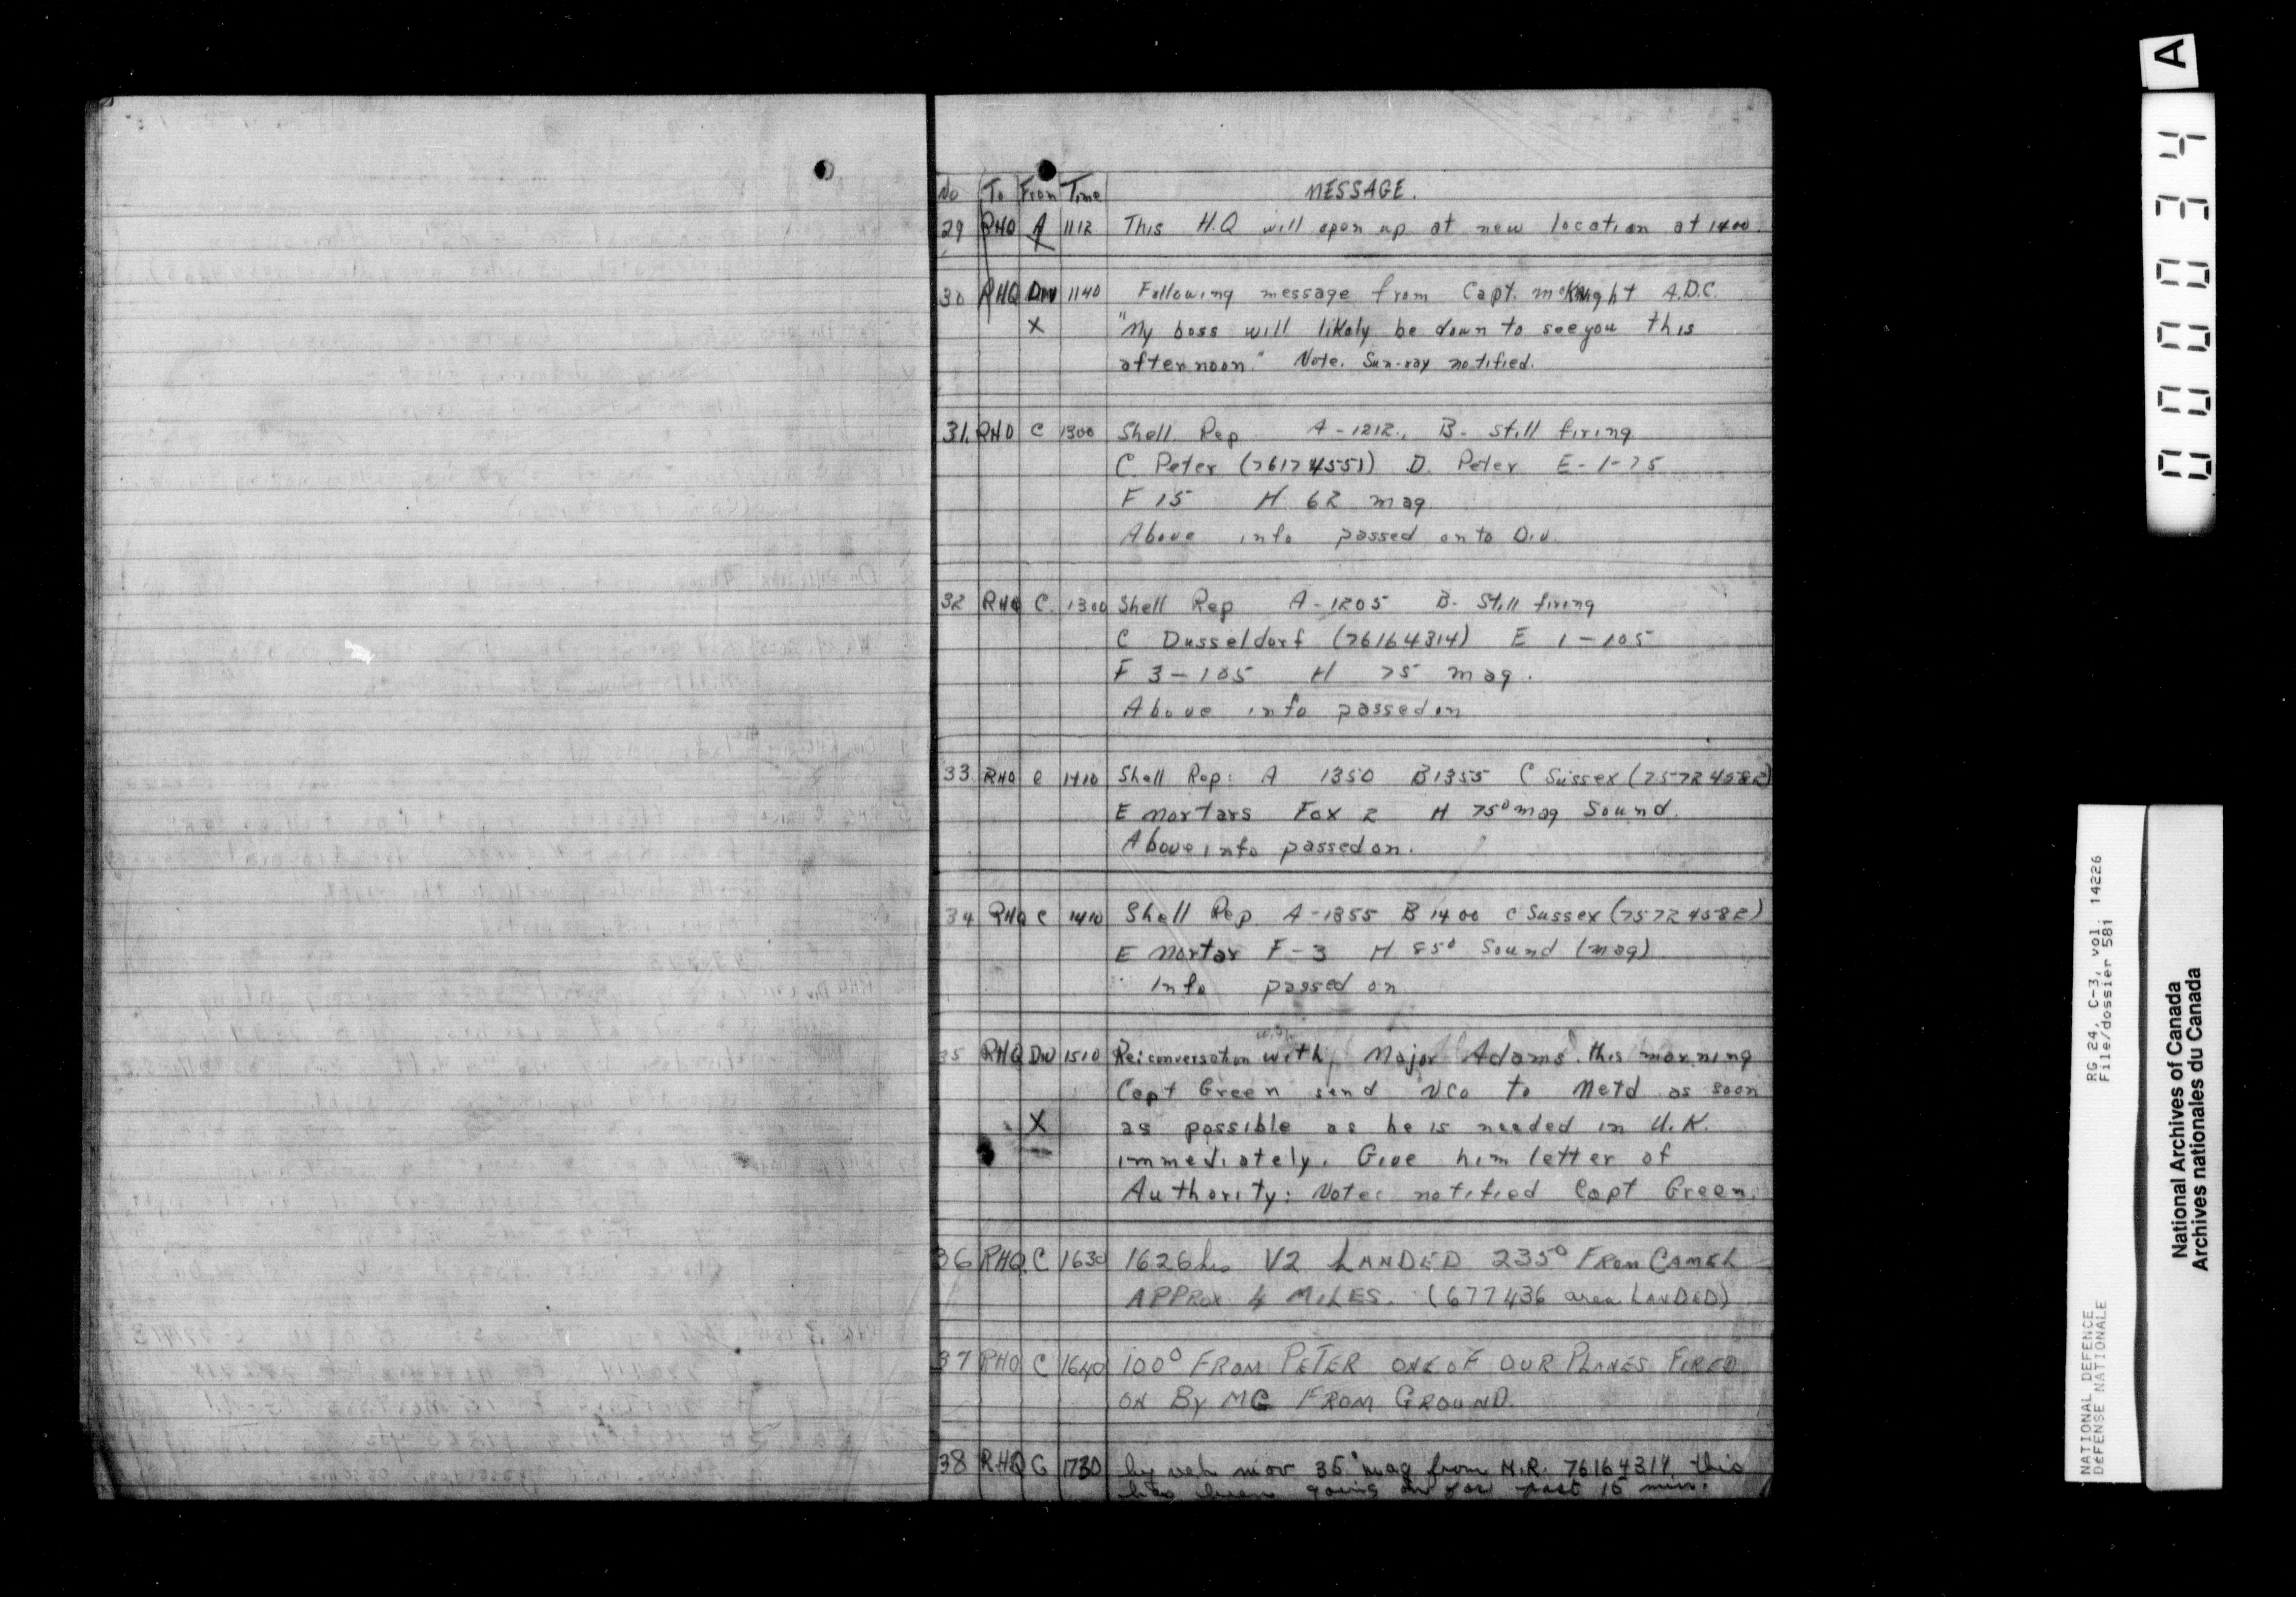 No To From Time MESSAGE.
29 RHQ A 1112 This H.Q will open up at new location at 1400.
30 RHQ Div 1140 Following message from Capt. McKnight A.D.C.
X "My boss will likely be down to see you this
afternoon." Note. Sun-ray notified.
31. RHQ C 1300 Shell Rep A-1212, B- Still firing
C Peter (76174551) D. Peter E-1-75
F 15 H 62 mag.
Above info passed onto Div.
32 RHQ C. 1300 Shell Rep A-1205 B- Still firing
C Dusseldorf (76164314) E 1-105
F 3-105 H 75 mag.
Above info passed on
33 RHQ C 1410 Shell Rep: A 1350 B 1355 C Sussex (75724582)
E Mortars Fox 2 H 75° mag Sound.
Above info passed on.
34 RHQ C 1410 Shell Rep A-1355 B 1400 C Sussex (75724582)
E Mortar F-3 H 85° Sound (mag)
Info passed on
35 RHQ Div 1510 Re: conversation with Major Adams this morning
Capt Green send NCO to Metd as soon
X as possible as he is needed in U.K.
immediately. Give him letter of
Authority: Note: notified Capt Green.
36 RHQ C 1630 1626 hrs V2 LANDED 235° FROM CAMEL
APPROX 4 MILES. (677436 area LANDED)
37 RHQ C 1640 100° FROM PETER ONE OF OUR PLANES FIRED
ON BY MG FROM GROUND.
38 RHQ C 1730 hy veh mov 35° mag from M.R. 76164314 this
has been going on for past 15 min.
A
000034
RG 24, C-3, vol. 14226
File/dossier 581
NATIONAL DEFENCE
DEFENSE NATIONALE
National Archives of Canada
Archives nationales du Canada